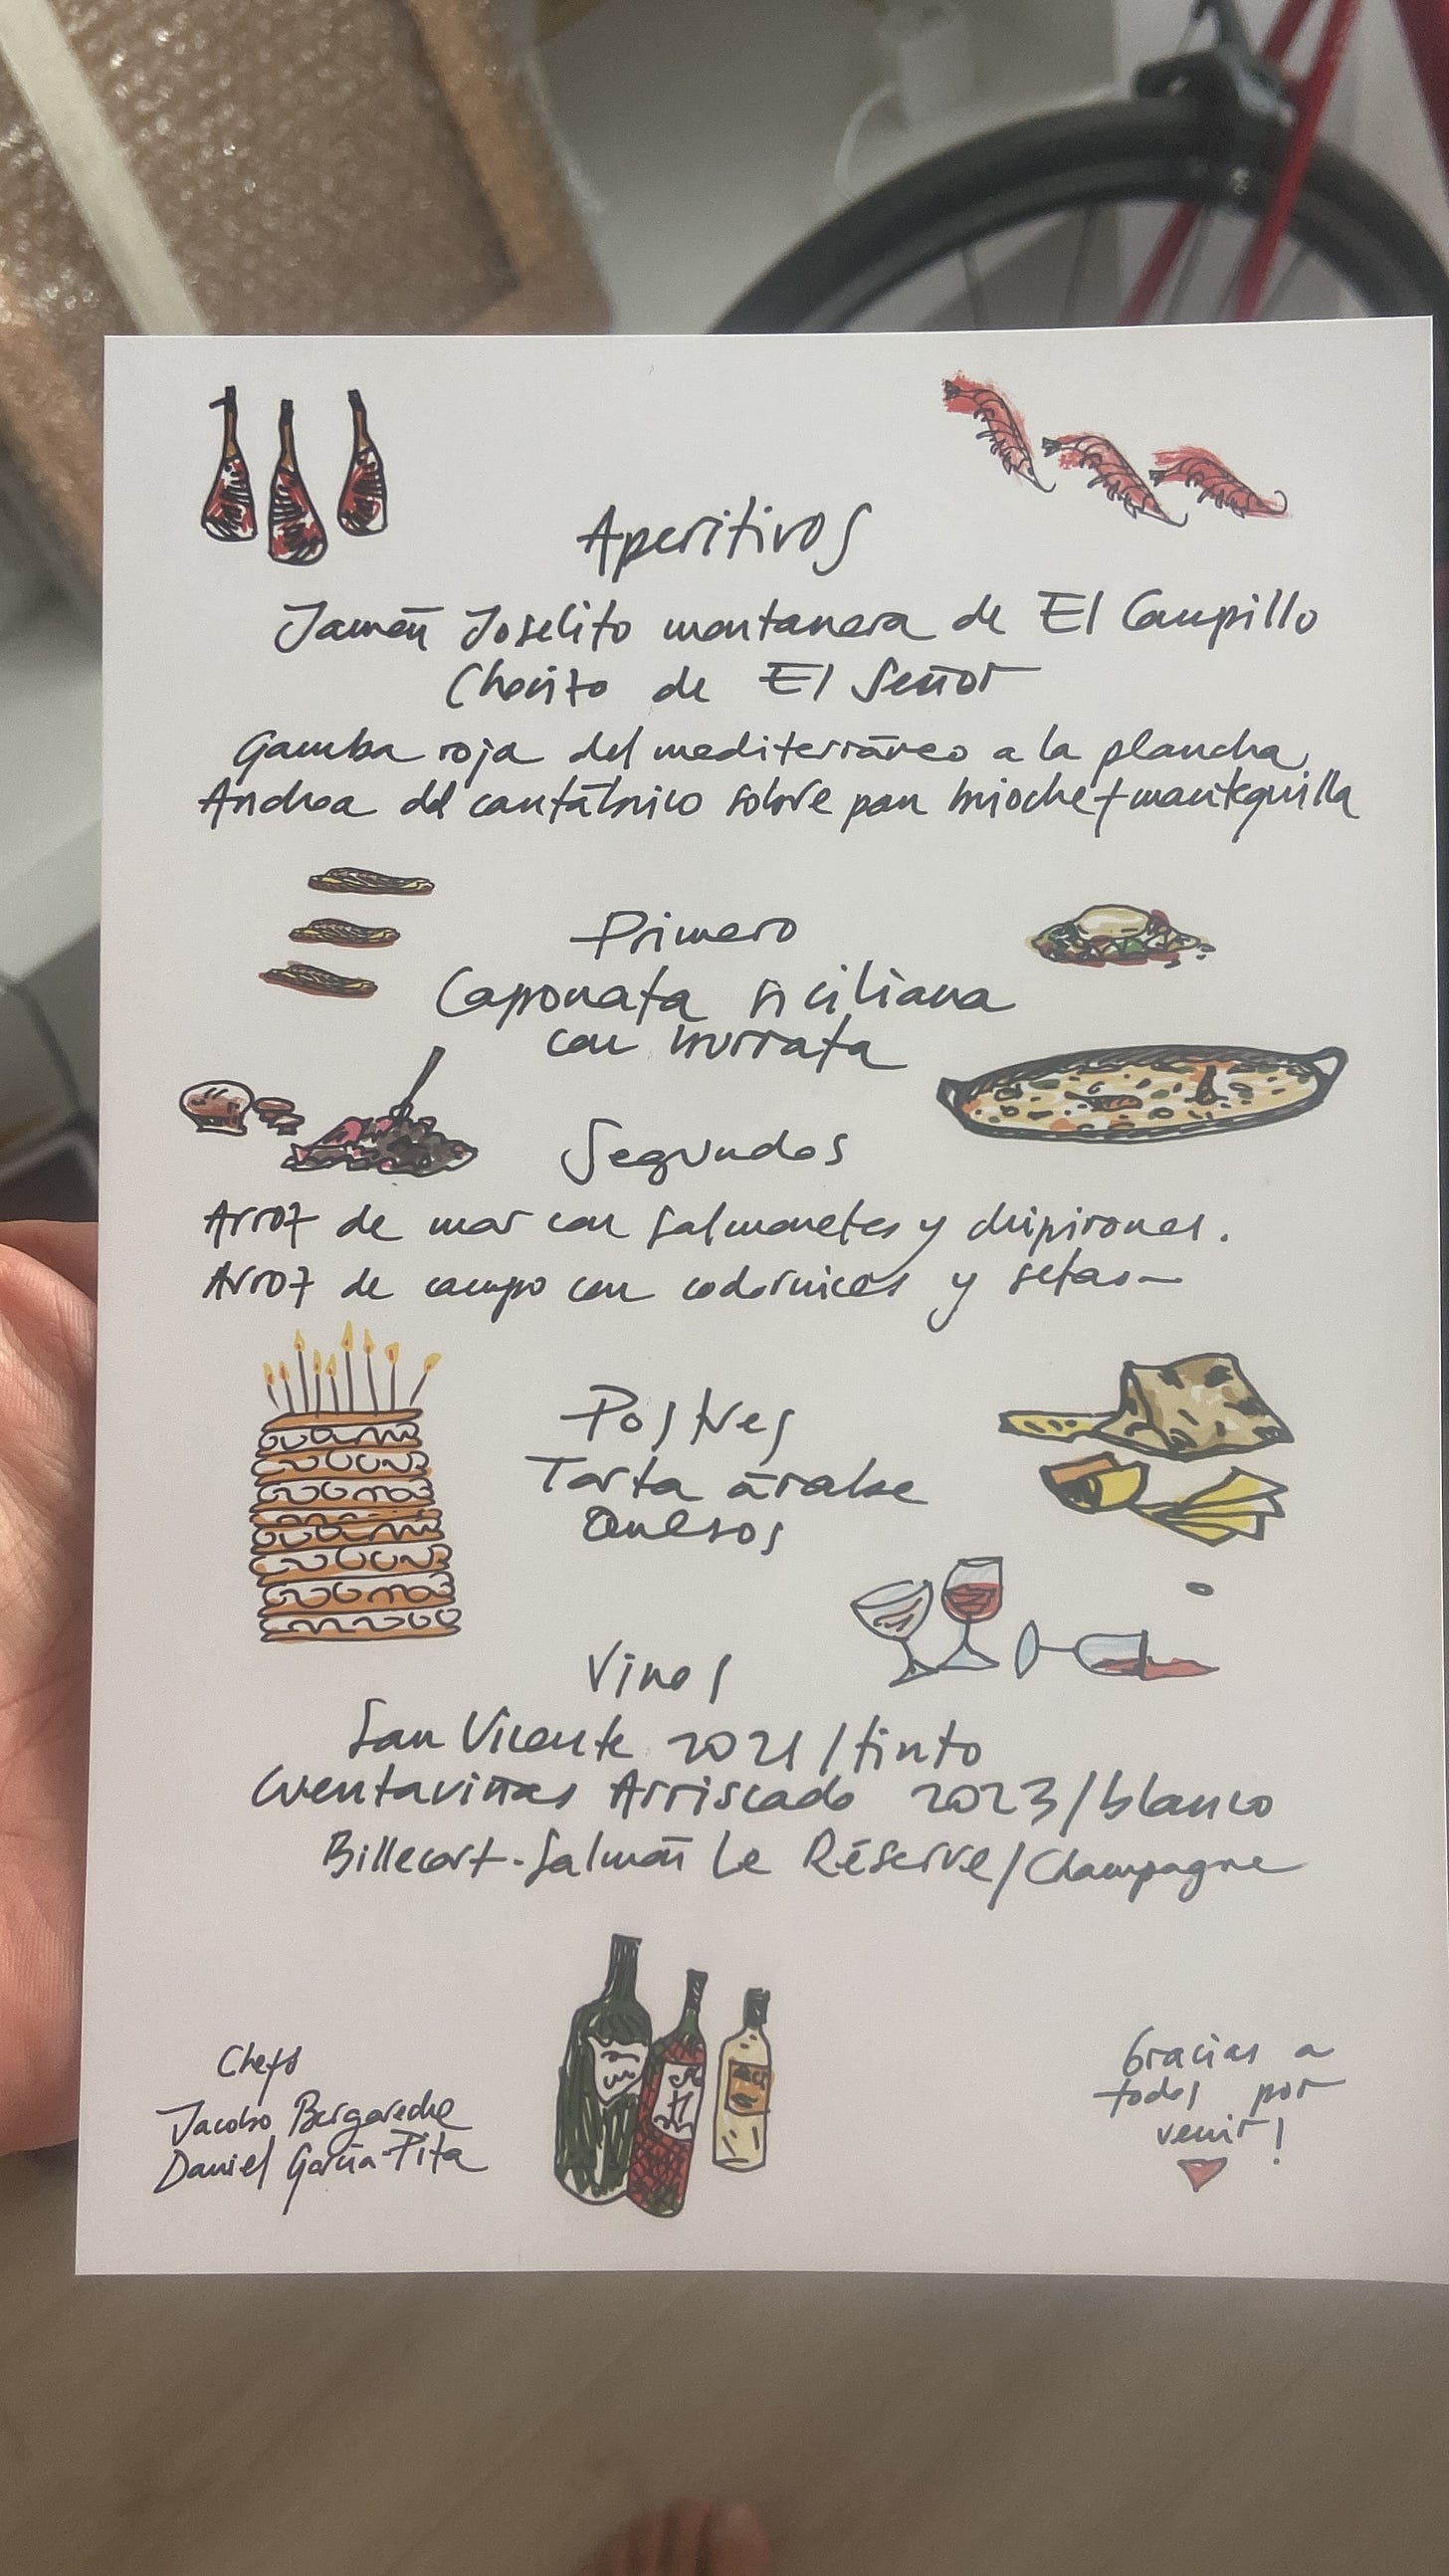 Aperitivos
Jamón Joselito montanera de El Campillo
Chorizo de El Señor
Gamba roja del mediterráneo a la plancha
Anchoa del cantábrico sobre pan brioche + mantequilla
Primero
Caponata siciliana
con burrata
Segundos
Arroz de mar con salmonetes y chipirones.
Arroz de campo con codornices y setas
Postres
Tarta árabe
Quesos
Vinos
San Vicente 2021 / tinto
Cuentaviñas Arriscado 2023 / blanco
Billecart-Salmón Le Réserve / Champagne
Chefs
Jacobo Bergareche
Daniel García-Pita
Gracias a
todos por
venir!